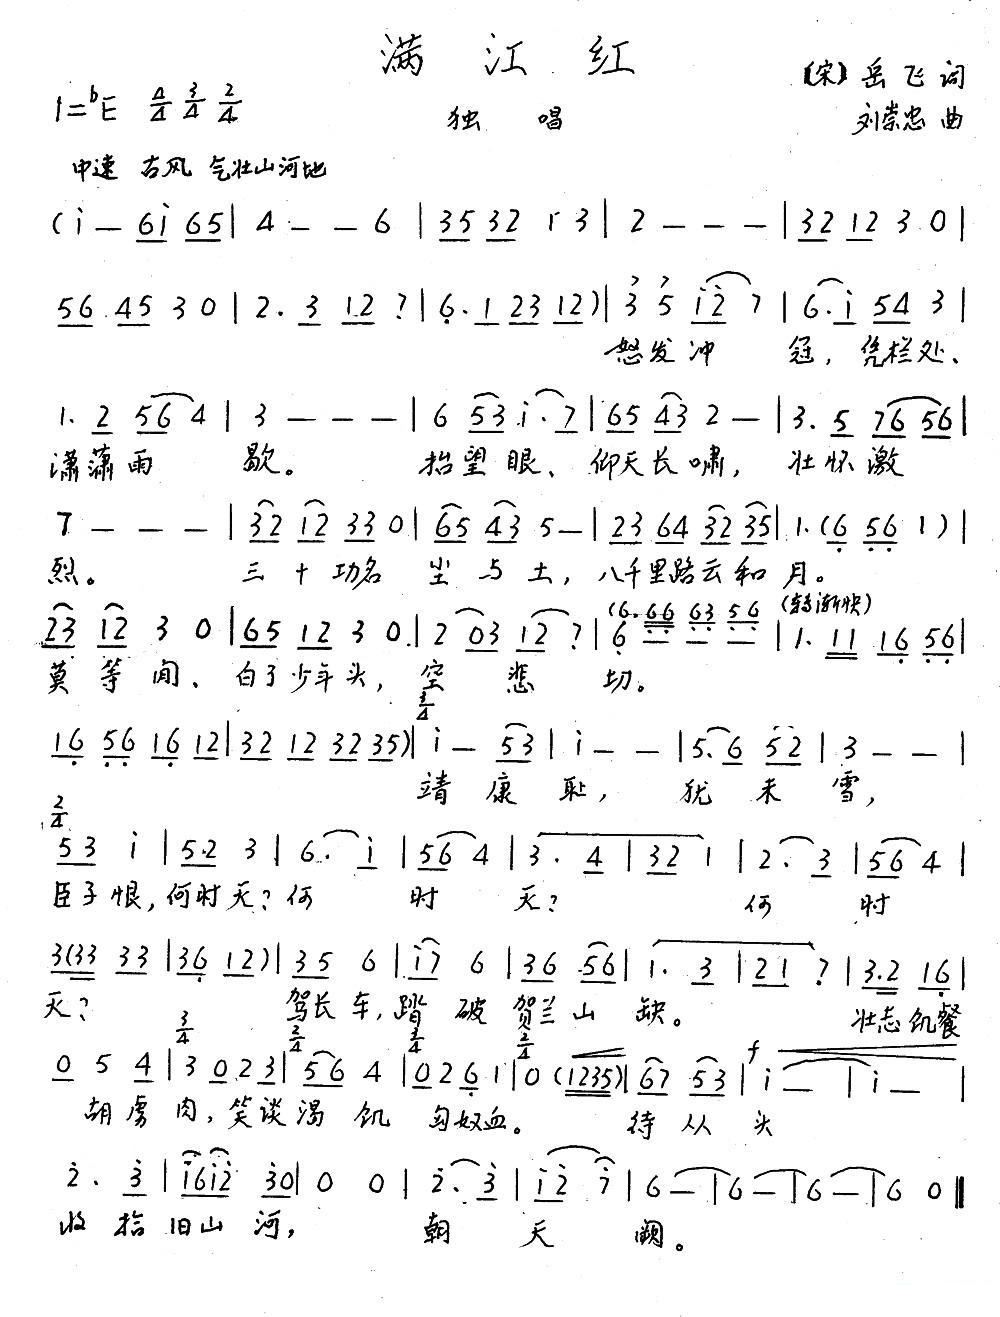 满江红
〔宋〕岳飞词
1=ᵇE 4/4 3/4 2/4
独唱
刘崇忠曲
中速 古风 气壮山河地
(i — 6i 65 | 4 — — 6 | 35 32 1 3 | 2 — — — | 32 12 3 0 |
56 45 3 0 | 2. 3 12 7 | 6. 1 23 12) | 3 5 i2 7 | 6. i 54 3 |
怒发冲冠，凭栏处、
1. 2 56 4 | 3 — — — | 6 53 i. 7 | 65 43 2 — | 3. 5 76 56 |
潇潇雨歇。抬望眼、仰天长啸，壮怀激
7 — — — | 32 12 33 0 | 65 43 5 — | 23 64 32 35 | 1. (6 56 1) |
烈。三十功名尘与土，八千里路云和月。
(6. 66 63 56 (转渐快)
23 12 3 0 | 65 12 3 0 | 2 03 12 7 | 6 — — — | 1. 11 16 56 |
莫等闲、白了少年头，空悲切。
3/4
16 56 16 12 | 32 12 32 35) | i — 53 | i — — | 5. 6 52 | 3 — — |
靖康耻，犹未雪，
2/4
53 i | 5.2 3 | 6. i | 56 4 | 3. 4 | 32 1 | 2. 3 | 56 4 |
臣子恨，何时灭？何时灭？何时
3(33 33 | 36 12) | 35 6 | i7 6 | 36 56 | 1. 3 | 21 7 | 3.2 16 |
灭？驾长车，踏破贺兰山缺。壮志饥餐
3/4 2/4 3/4 2/4 f
0 5 4 | 3 02 3 | 56 4 | 02 6 1 | 0 (1235) | 67 53 | i — | i — |
胡虏肉，笑谈渴饮匈奴血。待从头
2. 3 | i6i2 30 | 0 0 | 2. 3 | i2 7 | 6 — | 6 — | 6 — | 6 0 ‖
收拾旧山河，朝天阙。